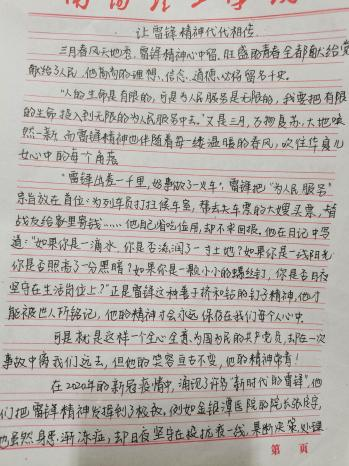 让雷锋精神代代相传
三月春风天地来,雷锋精神心中留。旺盛的青春全都献给党
献给了人民,他高尚的理想、信念、道德必将留名千史。
"人的生命是有限的,可是为人民服务是无限的,我要把有限
的生命,投入到无限的为人民服务中去。"又是三月,万物复苏,大地焕
然一新,而雷锋精神也伴随着每一缕温暖的春风,吹往华夏儿
女心中的每个角落
"雷锋出差一千里,好事做了一火车",雷锋把"为人民服务"
亲自放在首位:为列车员打扫候车室,帮丢失车票的大嫂买票,替
战友给家里寄钱……他自己省吃俭用,却不求回报,他在日记中写
道:"如果你是一滴水,你是否滋润了一寸土地?如果你是一线阳光
你是否照亮了一分黑暗?如果你是一颗小小的螺丝钉,你是否日夜
坚守在生活岗位上?"正是雷锋这种善于挤和钻的钉子精神,他才
能被世人所铭记,他的精神才会永远保存在我们每个人心中
可是就是这样一个全心全意,为国为民的共产党员,却在一次
事故中离我们远去,但他的笑容亘古不变,他的精神常青!
在2020年的新冠疫情中,涌现了许多"新时代的雷锋",他
们把雷锋精神发挥到了极致,例如金银潭医院的院长张定宇,
他虽然身患渐冻症,却日夜坚守在疫抗疫一线,果断决策,处理
第 页